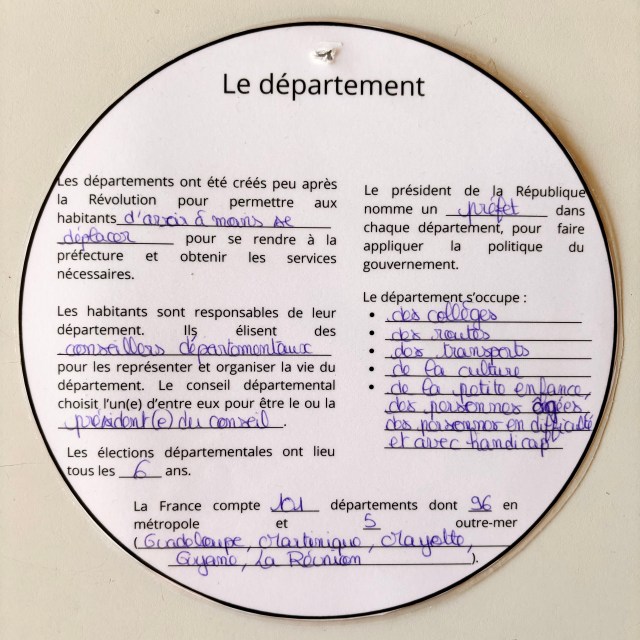 Le département
Les départements ont été créés peu après
la Révolution pour permettre aux
habitants d'avoir à moins se
déplacer pour se rendre à la
préfecture et obtenir les services
nécessaires.
Les habitants sont responsables de leur
département. Ils élisent des
conseillers départementaux
pour les représenter et organiser la vie du
département. Le conseil départemental
choisit l'un(e) d'entre eux pour être le ou la
président(e) du conseil.
Les élections départementales ont lieu
tous les 6 ans.
Le président de la République
nomme un préfet dans
chaque département, pour faire
appliquer la politique du
gouvernement.
Le département s'occupe :
• des collèges
• des routes
• des transports
• de la culture
• de la petite enfance,
des personnes âgées,
des personnes en difficulté
et avec handicap
La France compte 101 départements dont 96 en
métropole et 5 outre-mer
(Guadeloupe, Martinique, Mayotte,
Guyane, La Réunion).